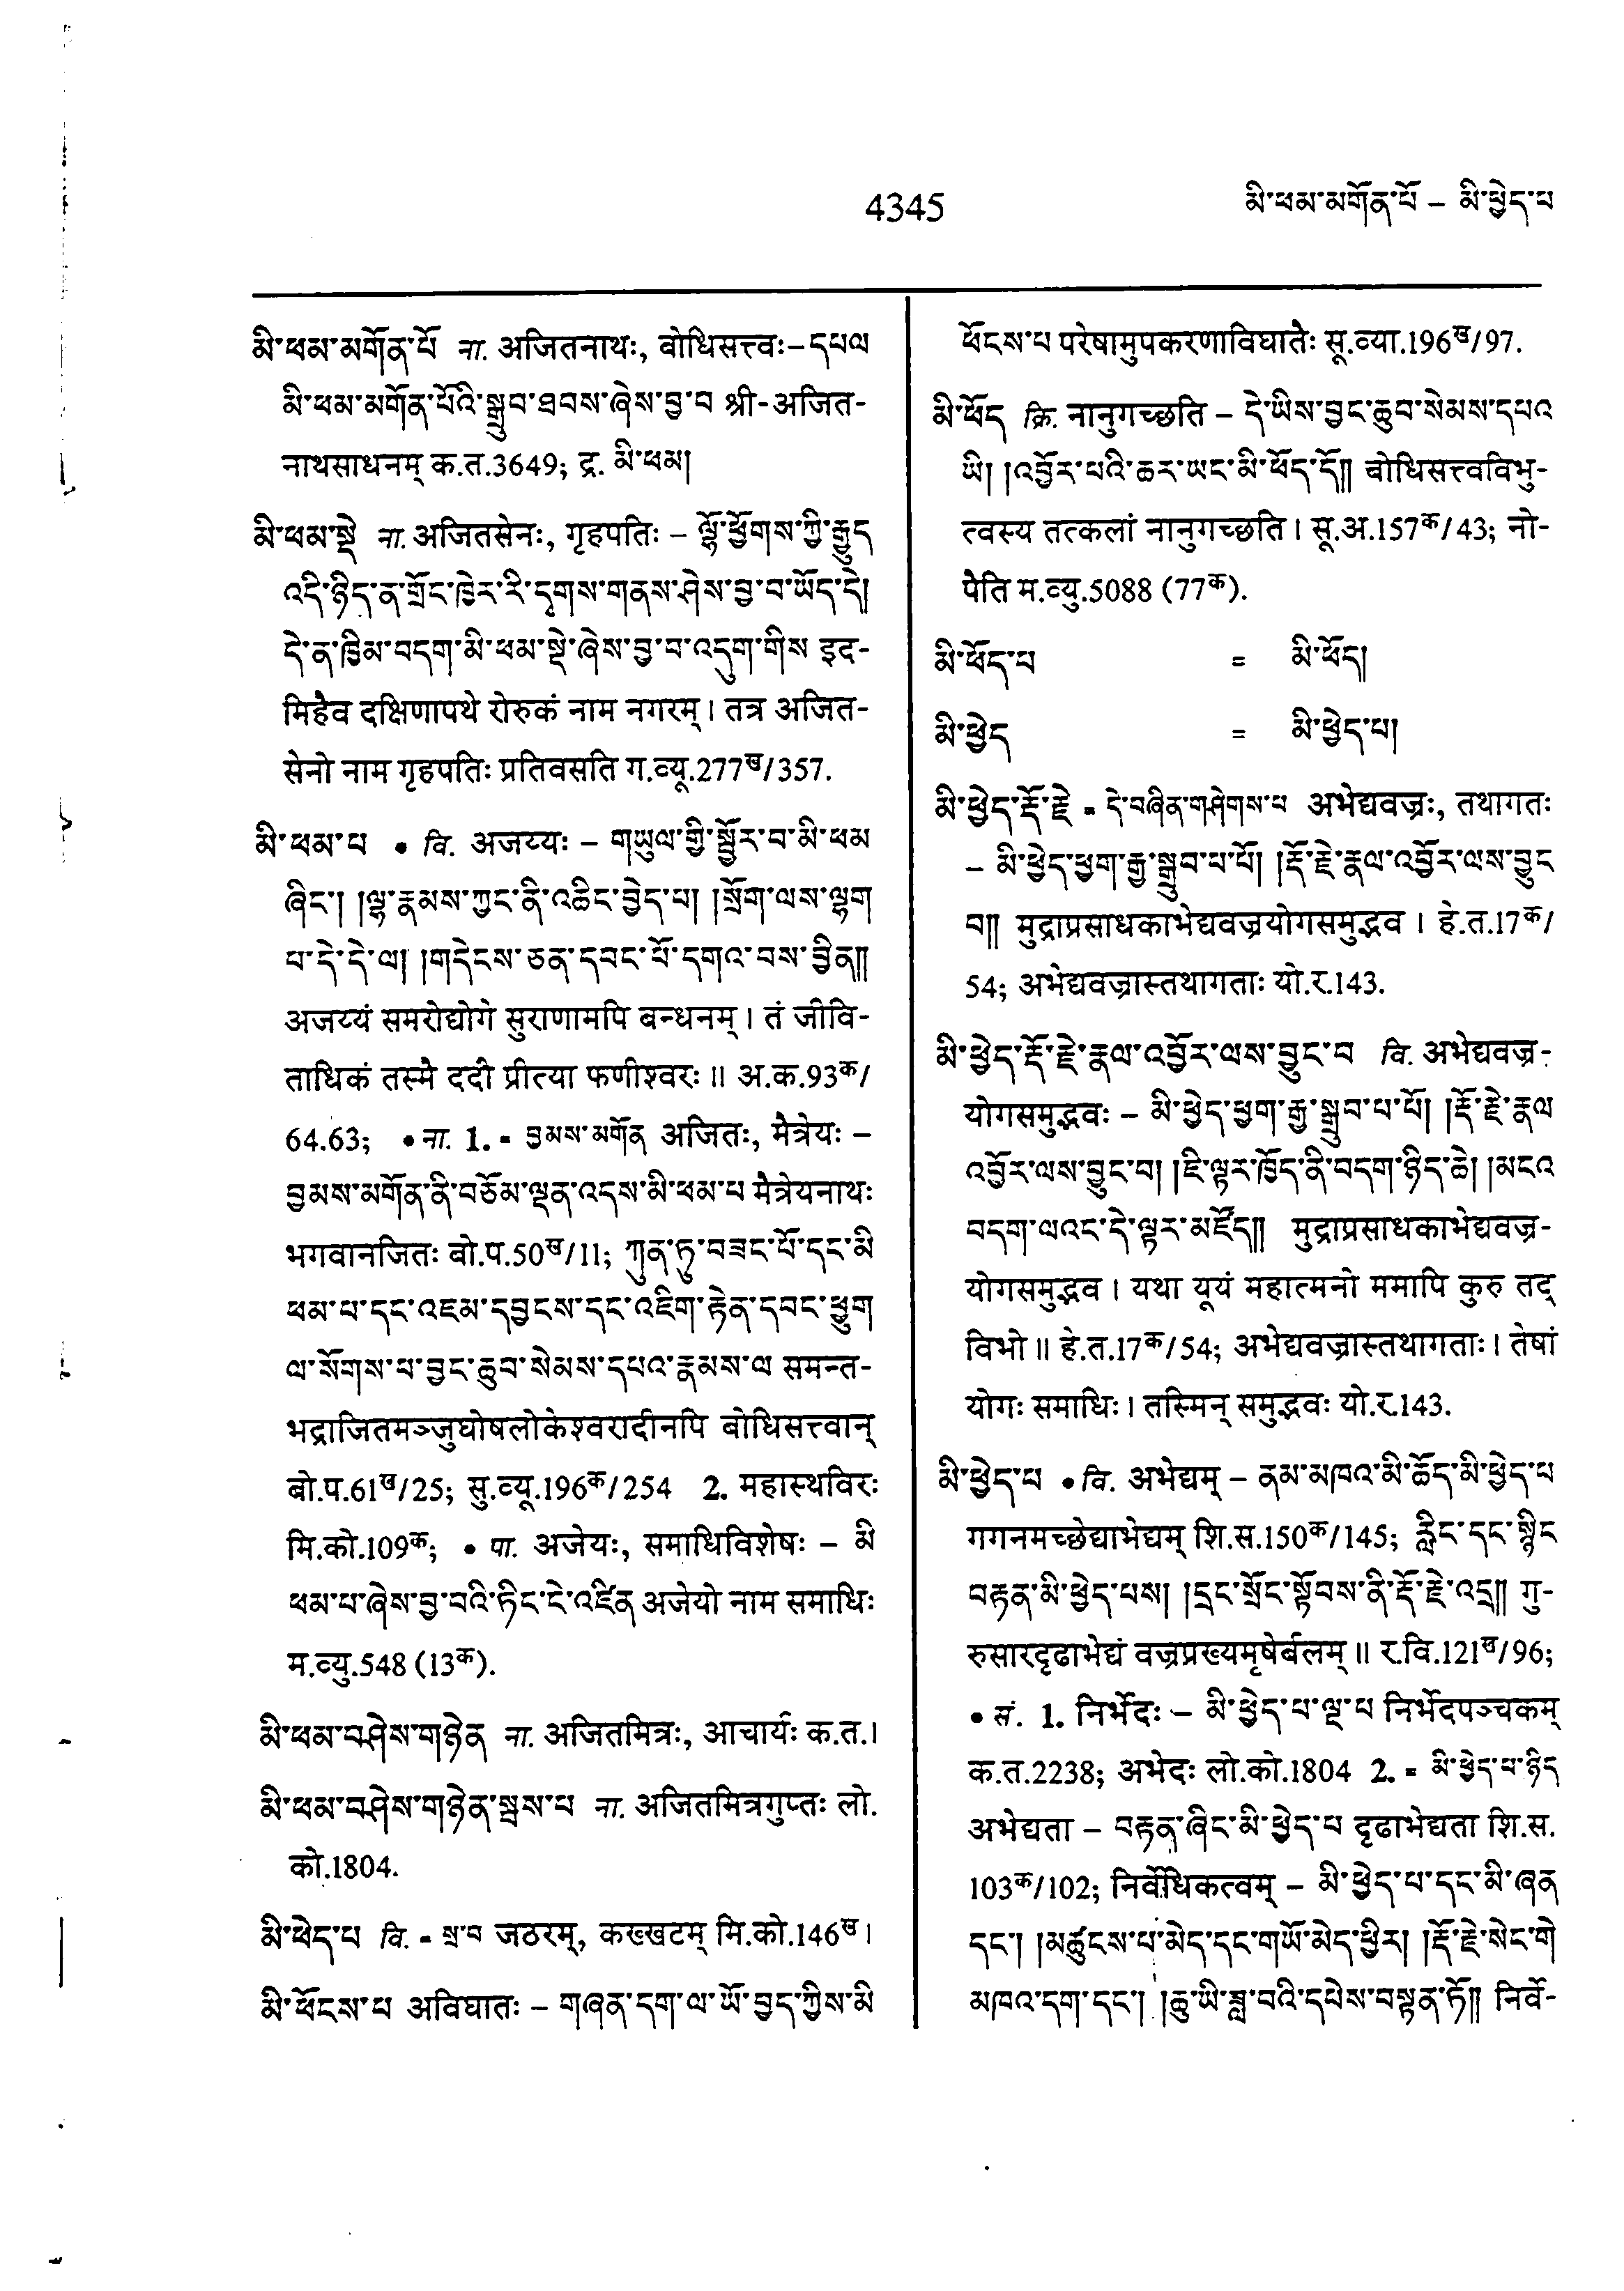 4345
མི་ཕམ་མགོན་པོ – མི་ཕྱེད་པ
མི་ཕམ་མགོན་པོ ना. अजितनाथः, बोधिसत्त्वः–དཔལ
མི་ཕམ་མགོན་པོའི་སྒྲུབ་ཐབས་ཞེས་བྱ་བ श्री-अजित-
नाथसाधनम् क.त.3649; द्र. མི་ཕམ།
མི་ཕམ་སྡེ ना. अजितसेनः, गृहपतिः – ལྷོ་ཕྱོགས་ཀྱི་རྒྱུད
འདི་ཉིད་ན་གྲོང་ཁྱེར་རི་དྭགས་གནས་ཤེས་བྱ་བ་ཡོད་དེ།
དེ་ན་ཁྱིམ་བདག་མི་ཕམ་སྡེ་ཞེས་བྱ་བ་འདུག་གིས इद-
मिहैव दक्षिणापथे रोरुकं नाम नगरम्। तत्र अजित-
सेनो नाम गृहपतिः प्रतिवसति ग.व्यू.277ख/357.
མི་ཕམ་པ • वि. अजय्यः – གཡུལ་གྱི་སྦྱོར་བ་མི་ཕམ
ཞིང་། །ལྷ་རྣམས་ཀྱང་ནི་འཆིང་བྱེད་པ། །སྲོག་ལས་ལྷག
པ་དེ་དེ་ལ། །གདེངས་ཅན་དབང་པོ་དགའ་བས་བྱིན།།
अजय्यं समरोद्योगे सुराणामपि बन्धनम्। तं जीवि-
ताधिकं तस्मै ददौ प्रीत्या फणीश्वरः॥ अ.क.93क/
64.63; • ना. 1. = བྱམས་མགོན अजितः, मैत्रेयः –
བྱམས་མགོན་ནི་བཅོམ་ལྡན་འདས་མི་ཕམ་པ मैत्रेयनाथः
भगवानजितः बो.प.50ख/11; ཀུན་ཏུ་བཟང་པོ་དང་མི
ཕམ་པ་དང་འཇམ་དབྱངས་དང་འཇིག་རྟེན་དབང་ཕྱུག
ལ་སོགས་པ་བྱང་ཆུབ་སེམས་དཔའ་རྣམས་ལ समन्त-
भद्राजितमञ्जुघोषलोकेश्वरादीनपि बोधिसत्त्वान्
बो.प.61ख/25; सु.व्यू.196क/254 2. महास्थविरः
मि.को.109क; • पा. अजेयः, समाधिविशेषः – མི
ཕམ་པ་ཞེས་བྱ་བའི་ཏིང་ངེ་འཛིན अजेयो नाम समाधिः
म.व्यु.548 (13क).
མི་ཕམ་བཤེས་གཉེན ना. अजितमित्रः, आचार्यः क.त.।
མི་ཕམ་བཤེས་གཉེན་སྦས་པ ना. अजितमित्रगुप्तः लो.
को.1804.
མི་ཕེད་པ वि. = སྲ་བ जठरम्, कख्खटम् मि.को.146ख।
མི་ཕོངས་པ अविघातः – གཞན་དག་ལ་ཡོ་བྱད་ཀྱིས་མི
ཕོངས་པ परेषामुपकरणाविघातैः सू.व्या.196ख/97.
མི་ཕོད क्रि. नानुगच्छति – དེ་ཡིས་བྱང་ཆུབ་སེམས་དཔའ
ཡི། །འབྱོར་པའི་ཆར་ཡང་མི་ཕོད་དོ།། बोधिसत्त्वविभु-
त्वस्य तत्कलां नानुगच्छति। सू.अ.157क/43; नो-
पैति म.व्यु.5088 (77क).
མི་ཕོད་པ = མི་ཕོད།
མི་ཕྱེད = མི་ཕྱེད་པ།
མི་ཕྱེད་རྡོ་རྗེ = དེ་བཞིན་གཤེགས་པ अभेद्यवज्रः, तथागतः
– མི་ཕྱེད་ཕྱག་རྒྱ་སྒྲུབ་པ་པོ། །རྡོ་རྗེ་རྣལ་འབྱོར་ལས་བྱུང
བ།། मुद्राप्रसाधकाभेद्यवज्रयोगसमुद्भव। हे.त.17क/
54; अभेद्यवज्रास्तथागताः यो.र.143.
མི་ཕྱེད་རྡོ་རྗེ་རྣལ་འབྱོར་ལས་བྱུང་བ वि. अभेद्यवज्र-
योगसमुद्भवः – མི་ཕྱེད་ཕྱག་རྒྱ་སྒྲུབ་པ་པོ། །རྡོ་རྗེ་རྣལ
འབྱོར་ལས་བྱུང་བ། །ཇི་ལྟར་ཁྱོད་ནི་བདག་ཉིད་ཆེ། །མངའ
བདག་ལའང་དེ་ལྟར་མཛོད།། मुद्राप्रसाधकाभेद्यवज्र-
योगसमुद्भव। यथा यूयं महात्मनो ममापि कुरु तद्
विभो॥ हे.त.17क/54; अभेद्यवज्रास्तथागताः। तेषां
योगः समाधिः। तस्मिन् समुद्भवः यो.र.143.
མི་ཕྱེད་པ • वि. अभेद्यम् – ནམ་མཁའ་མི་ཆོད་མི་ཕྱེད་པ
गगनमच्छेद्याभेद्यम् शि.स.150क/145; རློིང་དང་སྙིང
བརྟན་མི་ཕྱེད་པས། །དྲང་སྲོང་སྟོབས་ནི་རྡོ་རྗེ་འདྲ།། गु-
रुसारदृढाभेद्यं वज्रप्रख्यमृषेर्बलम्॥ र.वि.121ख/96;
• सं. 1. निर्भेदः – མི་ཕྱེད་པ་ལྔ་པ निर्भेदपञ्चकम्
क.त.2238; अभेदः लो.को.1804 2. = མི་ཕྱེད་པ་ཉིད
अभेद्यता – བརྟན་ཞིང་མི་ཕྱེད་པ दृढाभेद्यता शि.स.
103क/102; निर्वेधिकत्वम् – མི་ཕྱེད་པ་དང་མི་ཞན
དང་། །མཚུངས་པ་མེད་དང་གཡོ་མེད་ཕྱིར། །རྡོ་རྗེ་སེང་གེ
མཁའ་དག་དང་། །ཆུ་ཡི་ཟླ་བའི་དཔེས་བསྟན་ཏོ།། निर्वे-